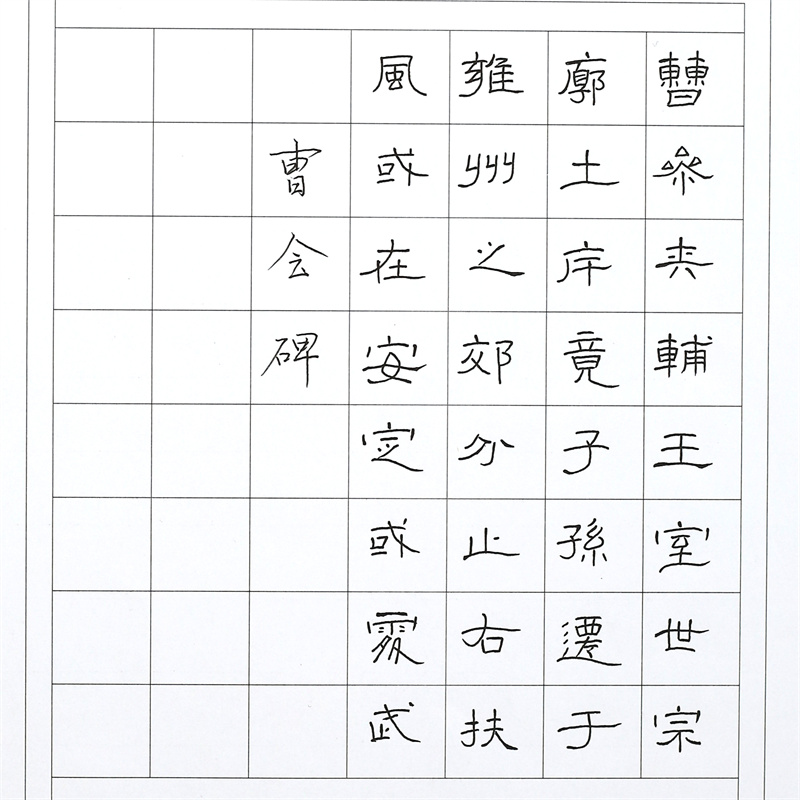 曹參夾輔王室世宗
廓土斥竟子孫遷于
雍州之郊分止右扶
風或在安定或處武
曹全碑